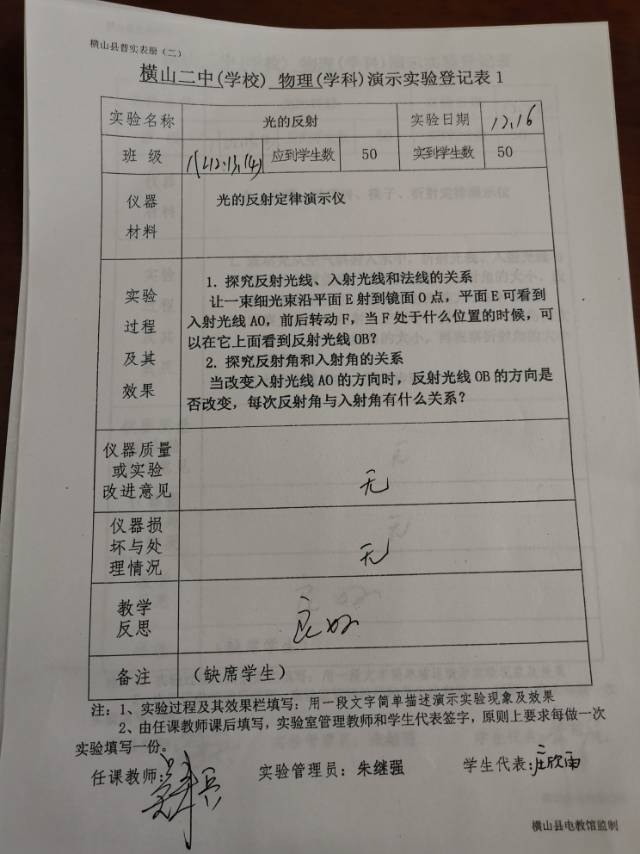 横山县普实表册（二）
横山二中(学校) 物理(学科)演示实验登记表1
实验名称 光的反射 实验日期 12.16
班 级 应到学生数 50 实到学生数 50
仪器
材料
光的反射定律演示仪
实验
过程
及其
效果
1. 探究反射光线、入射光线和法线的关系
让一束细光束沿平面E射到镜面O点，平面E可看到
入射光线AO，前后转动F，当F处于什么位置的时候，可
以在它上面看到反射光线OB？
2. 探究反射角和入射角的关系
当改变入射光线AO的方向时，反射光线OB的方向是
否改变，每次反射角与入射角有什么关系？
仪器质量
或实验
改进意见
无
仪器损
坏与处
理情况
无
教学
反思
良好
备注 （缺席学生）
注：1、实验过程及其效果栏填写：用一段文字简单描述演示实验现象及效果
2、由任课教师课后填写，实验室管理教师和学生代表签字，原则上要求每做一次
实验填写一份。
任课教师: 实验管理员：朱继强 学生代表:庄欣雨
横山县电教馆监制